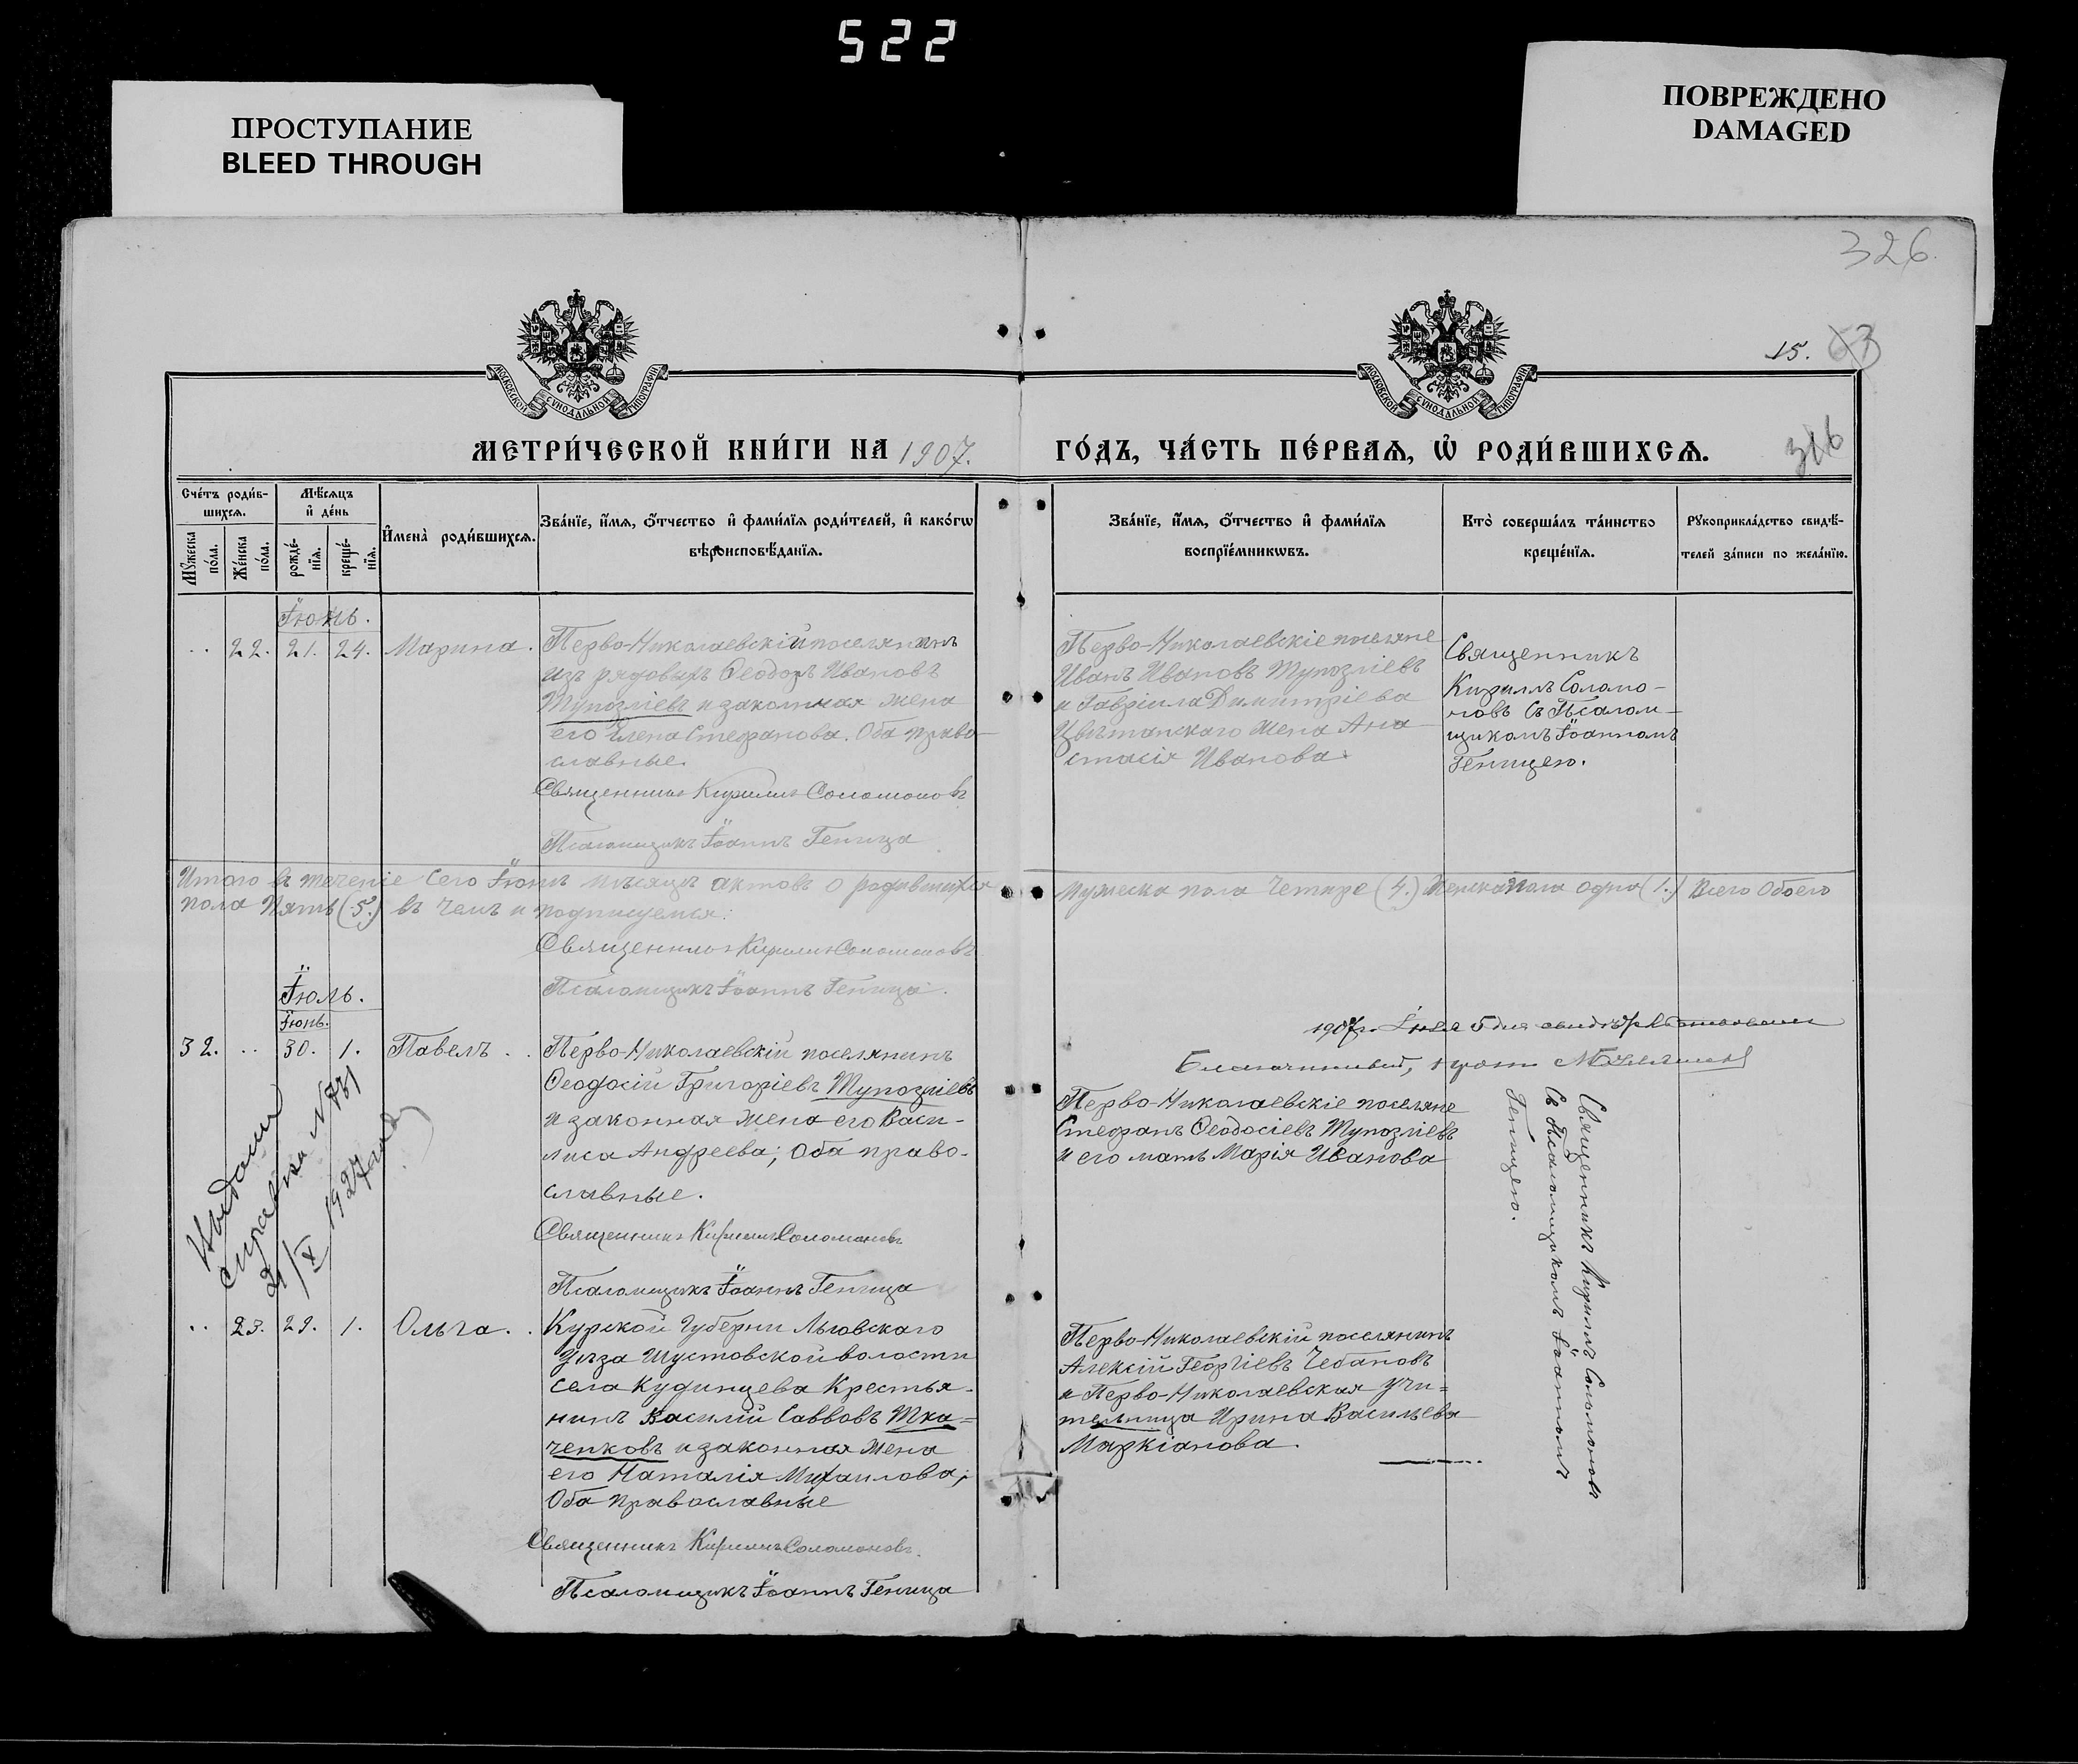 522
ПРОСТУПАНИЕ
BLEED THROUGH
ПОВРЕЖДЕНО
DAMAGED
326.
15.
МОСКОВСКОЙ СѴНОДАЛЬНОЙ ТИПОГРАФІИ
МОСКОВСКОЙ СѴНОДАЛЬНОЙ ТИПОГРАФІИ
МЕТРИ́ЧЕСКОЙ КНИ́ГИ НА 1907.
ГО́ДЪ, ЧА́СТЬ ПЕ́РВАѦ, Ѡ҆ РОДИ́ВШИХСѦ.
316
Сче́тъ роди́в-
шихсѧ.
Мѣ́сѧцъ
и҆ де́нь
Мꙋ́жеска
по́ла.
Же́нска
по́ла.
рожде́-
нїѧ.
креще́-
нїѧ.
И҆мена̀ роди́вшихсѧ.
Зва́нїе, и҆́мѧ, ѻ҆́тчество и҆ фами́лїѧ роди́телей, и҆ како́гѡ
вѣроисповѣ́данїѧ.
Зва́нїе, и҆́мѧ, ѻ҆́тчество и҆ фами́лїѧ
воспрїе́мникѡвъ.
Кто̀ соверша́лъ та́инство
креще́нїѧ.
Рꙋкоприкла́дство свидѣ́-
телей за́писи по жела́нїю.
Іюнь.
22. 21. 24. Марина.
Перво-Николаевскій поселянинъ
изъ рядовыхъ Ѳеодоръ Ивановъ
Тупозліевъ и законная жена
его Елена Стефанова. Оба право-
славные.
Священникъ Кириллъ Соломоновъ
Псаломщикъ Іоаннъ Геница
Перво-Николаевскіе поселяне
Иванъ Ивановъ Тупозліевъ
и Гавріила Димитріева
Цвѣтанскаго жена Ана
стасія Иванова
Священникъ
Кириллъ Соломо-
новъ съ Псалом-
щикомъ Іоанномъ
Геницею.
Итого въ теченіе сего Іюнь мѣсяцъ актовъ о родившихся мужеска пола Четыре (4.) женска пола одна (1.) Всего Обоего
пола Пять (5.) въ чемъ и подписуемся:
Священникъ Кириллъ Соломоновъ
Псаломщикъ Іоаннъ Геница.
Іюль.
Іюнь.
1907 г. Іюля 5 дня свидѣтельствовалъ
Благочинный,
32. 30. 1. Павелъ
Перво-Николаевскій поселянинъ
Ѳеодосій Григоріевъ Тупозліевъ
и законная жена его Васи-
лиса Андреева; Оба право-
славные.
Священникъ Кириллъ Соломоновъ
Псаломщикъ Іоаннъ Геница
Перво-Николаевскіе поселяне
Стефанъ Ѳеодосіевъ Тупозліевъ
и его мать Марія Иванова
Священникъ Кириллъ Соломоновъ
съ Псаломщикомъ Іоанномъ
Геницею.
Выдана
справка №
21/X 1927
23. 29. 1. Ольга
Курской Губерни Льговскаго
уѣзда Шустовской волости
села Кудинцева Крестья-
нинъ Василій Саввовъ Тка=
ченковъ и законная жена
его Наталія Михаилова;
Оба православные
Священникъ Кириллъ Соломоновъ.
Псаломщикъ Іоаннъ Геница
Перво-Николаевскій поселянинъ
Алексій Георгіевъ Чебановъ
и Перво-Николаевская учи=
тельница Ирина Васильева
Маркіанова.